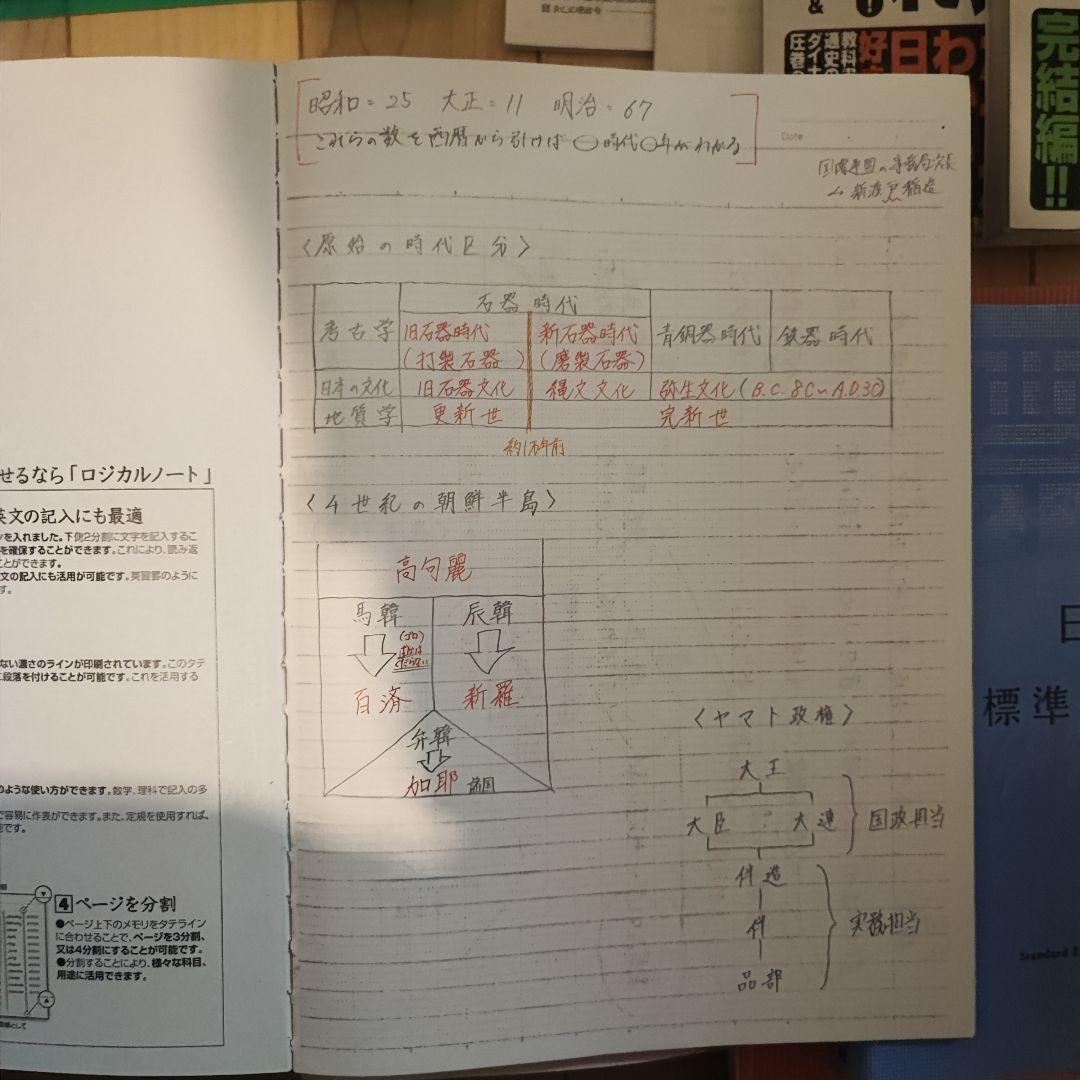 昭和=25 大正=11 明治=67
これらの数を西暦から引けば○時代○年がわかる
Date
国際連盟の事務局次長
新渡戸稲造
〈原始の時代区分〉
石器時代
考古学 旧石器時代 新石器時代 青銅器時代 鉄器時代
(打製石器) (磨製石器)
日本の文化 旧石器文化 縄文文化 弥生文化(B.C.8C~A.D.3C)
地質学 更新世 完新世
約1万年前
〈4世紀の朝鮮半島〉
高句麗
馬韓 辰韓
百済 新羅
弁韓
加耶 諸国
〈ヤマト政権〉
大王
大臣 大連 国政担当
伴造
伴 実務担当
品部
せるなら「ロジカルノート」
英文の記入にも最適
ンを入れました。下側2分割に文字を記入するこ
を確保することができます。これにより、読み返
ことができます。
文の記入にも活用が可能です。英習罫のように
す。
ない濃さのラインが印刷されています。このタテ
段落を付けることが可能です。これを活用する
のような使い方ができます。数学、理科で記入の多
で容易に作表ができます。また、定規を使用すれば、
能です。
4 ページを分割
●ページ上下のメモリをタテライン
に合わせることで、ページを3分割、
又は4分割にすることが可能です。
●分割することにより、様々な科目、
用途に活用できます。
完結編!!
日
標準
Standard